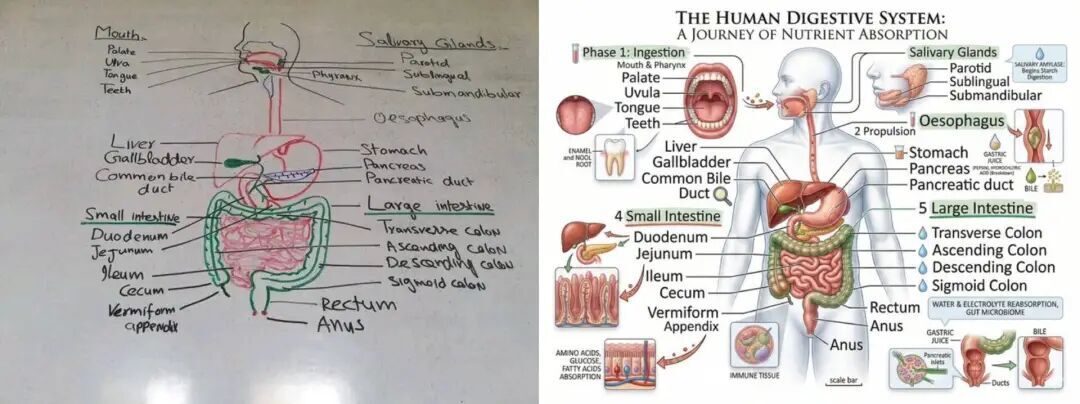 Mouth
Palate
Ulva
Tongue
Teeth
Salivary Glands
Parotid
Sublingual
Submandibular
Phyranx
Oesophagus
Liver
Gallbladder
Common bile
duct
Stomach
Pancreas
Pancreatic duct
Small intestine
Duodenum
Jejunum
Ileum
Cecum
Vermiform
appendix
Large intestive
Transverse colon
Ascending colon
Descending colon
Sigmoid colon
Rectum
Anus
THE HUMAN DIGESTIVE SYSTEM:
A JOURNEY OF NUTRIENT ABSORPTION
Phase 1: Ingestion
Mouth & Pharynx
Palate
Uvula
Tongue
Teeth
ENAMEL
and NOOL
ROOT
Salivary Glands
Parotid
Sublingual
Submandibular
SALIVARY AMYLASE:
Begins Starch
Digestion
2 Propulsion
Oesophagus
GASTRIC
JUICE
(PEPSIN, HYDROCHLORIC
ACID (Breakdown)
BILE
Liver
Gallbladder
Common Bile
Duct
Stomach
Pancreas
Pancreatic duct
4 Small Intestine
Duodenum
Jejunum
Ileum
Cecum
Vermiform
Appendix
5 Large Intestine
Transverse Colon
Ascending Colon
Descending Colon
Sigmoid Colon
Rectum
Anus
Anus
WATER & ELECTROLYTE REABSORPTION,
GUT MICROBIOME
AMINO ACIDS,
GLUCOSE,
FATTY ACIDS
ABSORPTION
IMMUNE TISSUE
scale bar
GASTRIC
JUICE
Pancreatic
islets
Ducts
BILE